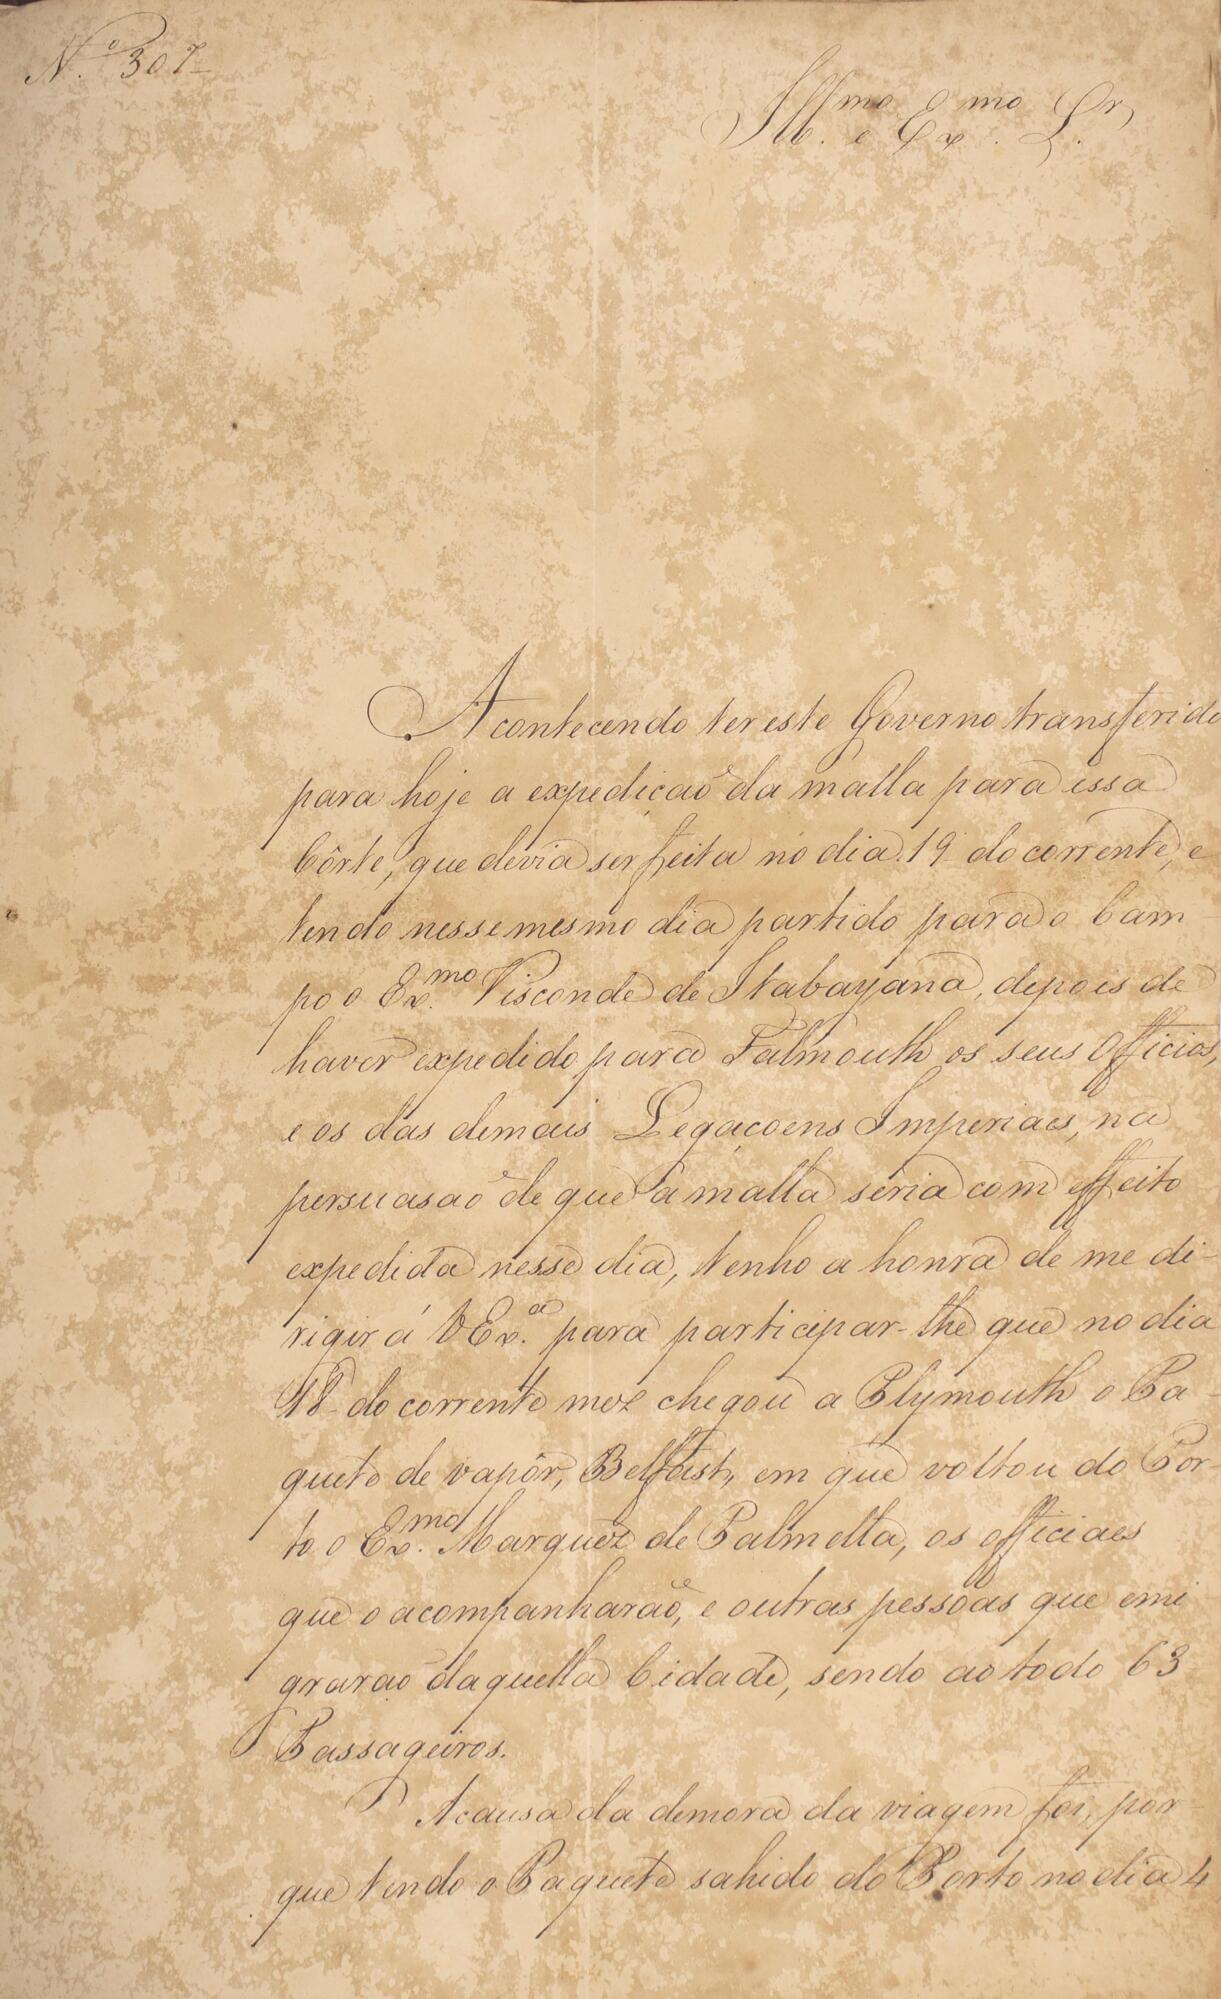 N.º 307
Ill.mo e Ex.mo Sr.
Acontecendo ter este Governo transferido
para hoje a expedição da malla para essa
Côrte, que devia ser feita no dia 19 do corrente, e
tendo nesse mesmo dia partido para o Cam-
po o Ex.mo Visconde de Itabayana, depois de
haver expedido para Falmouth os seus Officios,
e os das demais Legaçoens Imperiaes, na
persuasaõ de que a malla seria com effeito
expedida nesse dia, tenho a honra de me di-
rigir á V Ex.a para participar-lhe que no dia
18 do corrente mez chegou a Plymouth o Pa-
quete de vapôr, Belfast, em que voltou do Por-
to o Ex.mo Marquez de Palmella, os officiaes
que o acompanharaõ, e outras pessoas que emi
graraõ daquella Cidade, sendo ao todo 63
Passageiros.
A causa da demora da viagem foi, por-
que tendo o Paquete sahido do Porto no dia 4